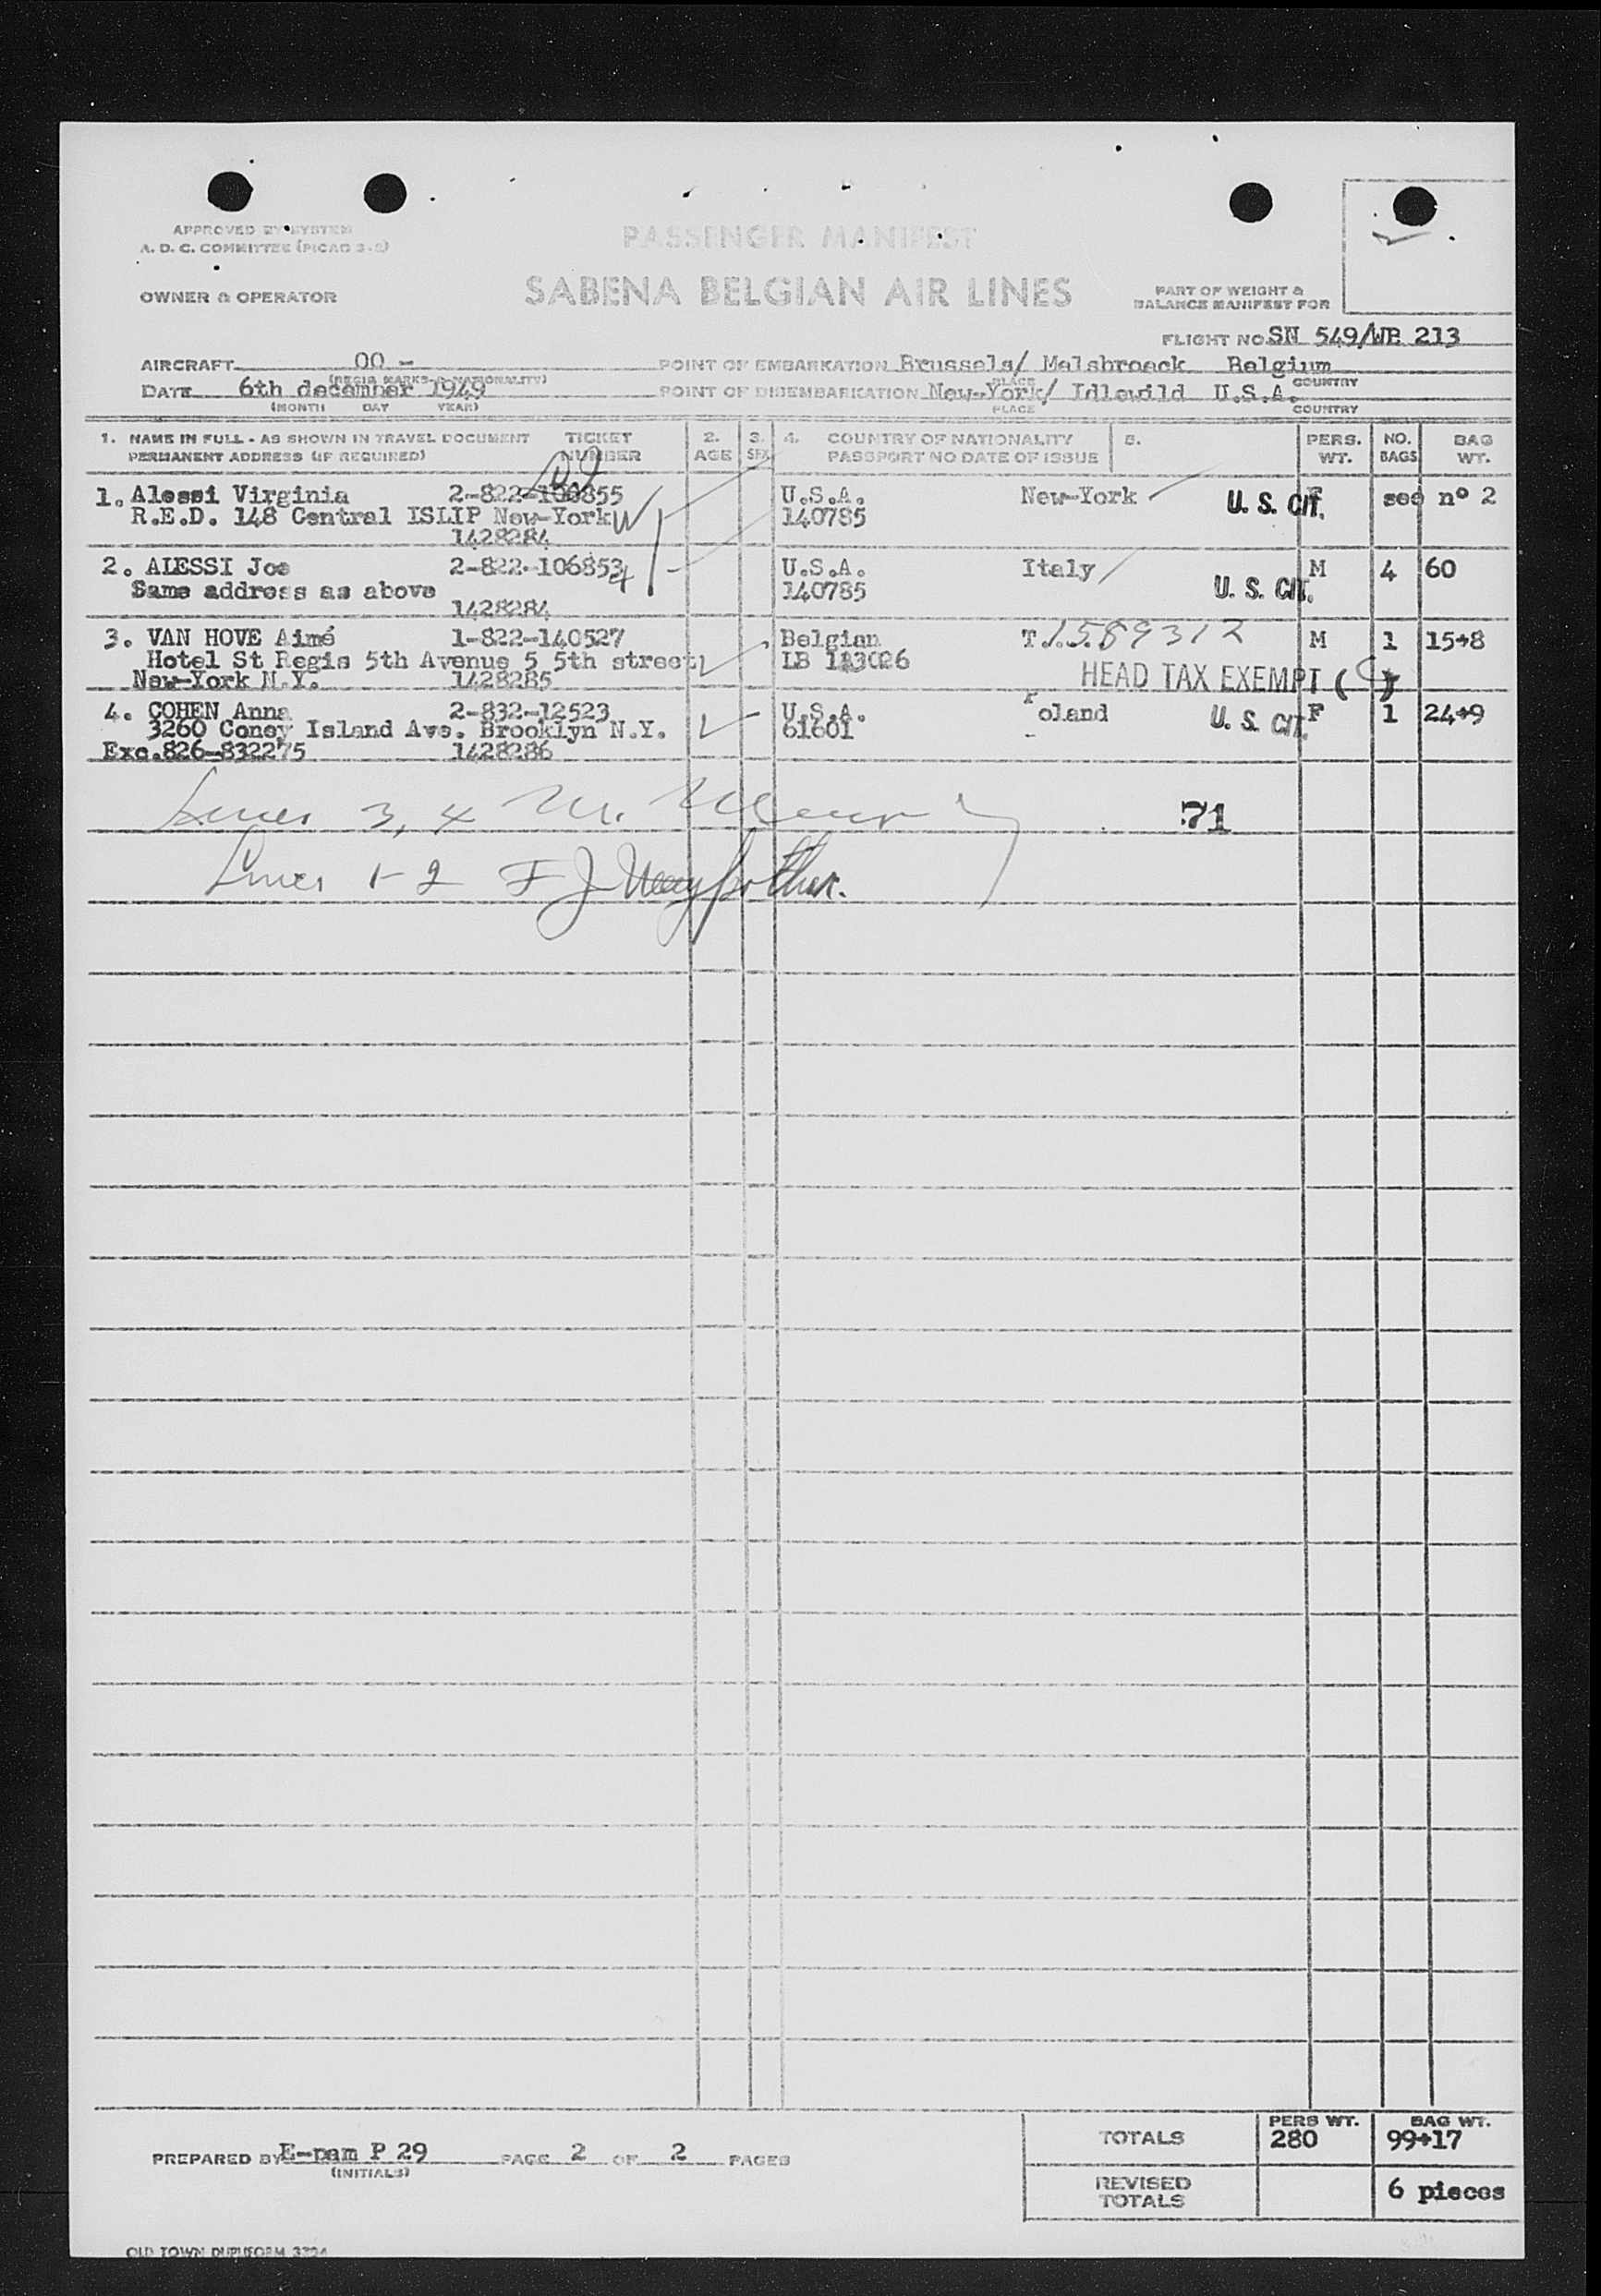 APPROVED BY SYSTEM
A. D. C. COMMITTEE (PICAO 2-2)
PASSENGER MANIFEST
OWNER & OPERATOR
SABENA BELGIAN AIR LINES
PART OF WEIGHT &
BALANCE MANIFEST FOR
FLIGHT NO. SN 549/WB 213
AIRCRAFT OO - POINT OF EMBARKATION Brussels/ Melsbroeck Belgium
(REGIS MARKS & NATIONALITY) PLACE COUNTRY
DATE 6th december 1949 POINT OF DISEMBARKATION New-York/ Idlewild U.S.A.
(MONTH DAY YEAR) PLACE COUNTRY
1. NAME IN FULL - AS SHOWN IN TRAVEL DOCUMENT TICKET 2. 3. 4. COUNTRY OF NATIONALITY 5. PERS. NO. BAG
PERMANENT ADDRESS (IF REQUIRED) NUMBER AGE SEX PASSPORT NO DATE OF ISSUE WT. BAGS WT.
1. Alessi Virginia 2-822-106855 U.S.A. New-York U. S. CIT. F see nº 2
R.E.D. 148 Central ISLIP New-York 140785
1428284
2. ALESSI Joe 2-822-106853 U.S.A. Italy M 4 60
Same address as above 140785 U. S. CIT.
1428284
3. VAN HOVE Aimé 1-822-140527 Belgian T 1589312 M 1 15+8
Hotel St Regis 5th Avenue 5 5th street LB 113026
New-York N.Y. 1428285 HEAD TAX EXEMPT
4. COHEN Anna 2-832-12523 U.S.A. Poland U. S. CIT. F 1 24+9
3260 Coney Island Ave. Brooklyn N.Y. 61601
Exc.826-832275 1428286
Lines 3, 4 M.
71
Lines 1-2 F J
TOTALS PERS WT. 280 BAG WT. 99+17
PREPARED BY E-pam P 29 PAGE 2 OF 2 PAGES
(INITIALS)
REVISED TOTALS 6 pieces
OLD TOWN DUPLIFORM